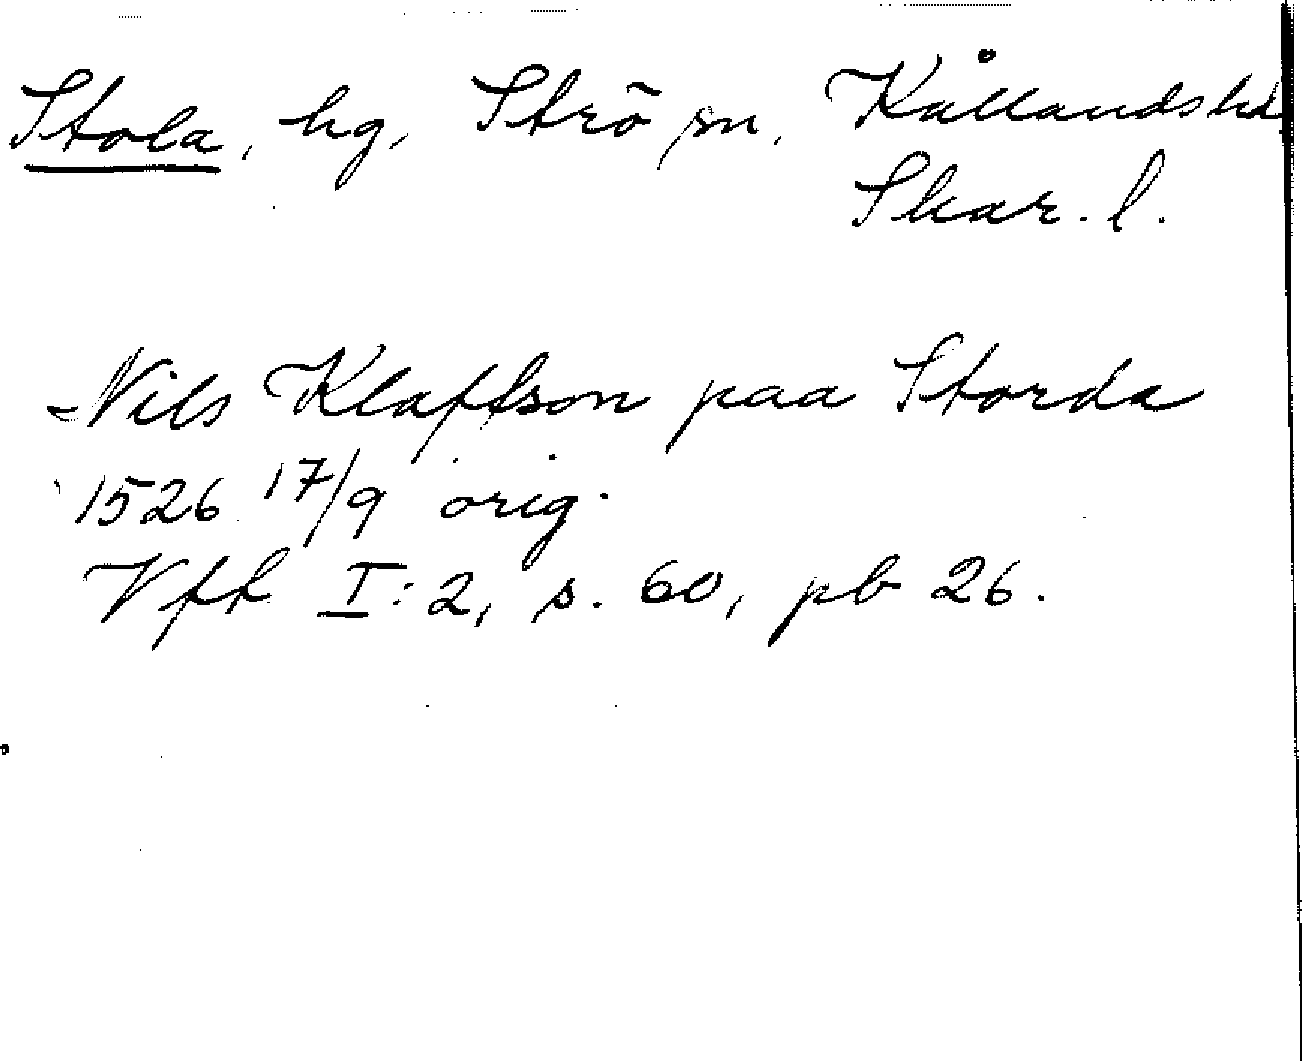 Stola, hg, Strö sn, Kållands hd
Skar. l.
Nils Klaffson paa Storda
1526 17/9 orig.
Vfk I:2, s. 60, pb 26.